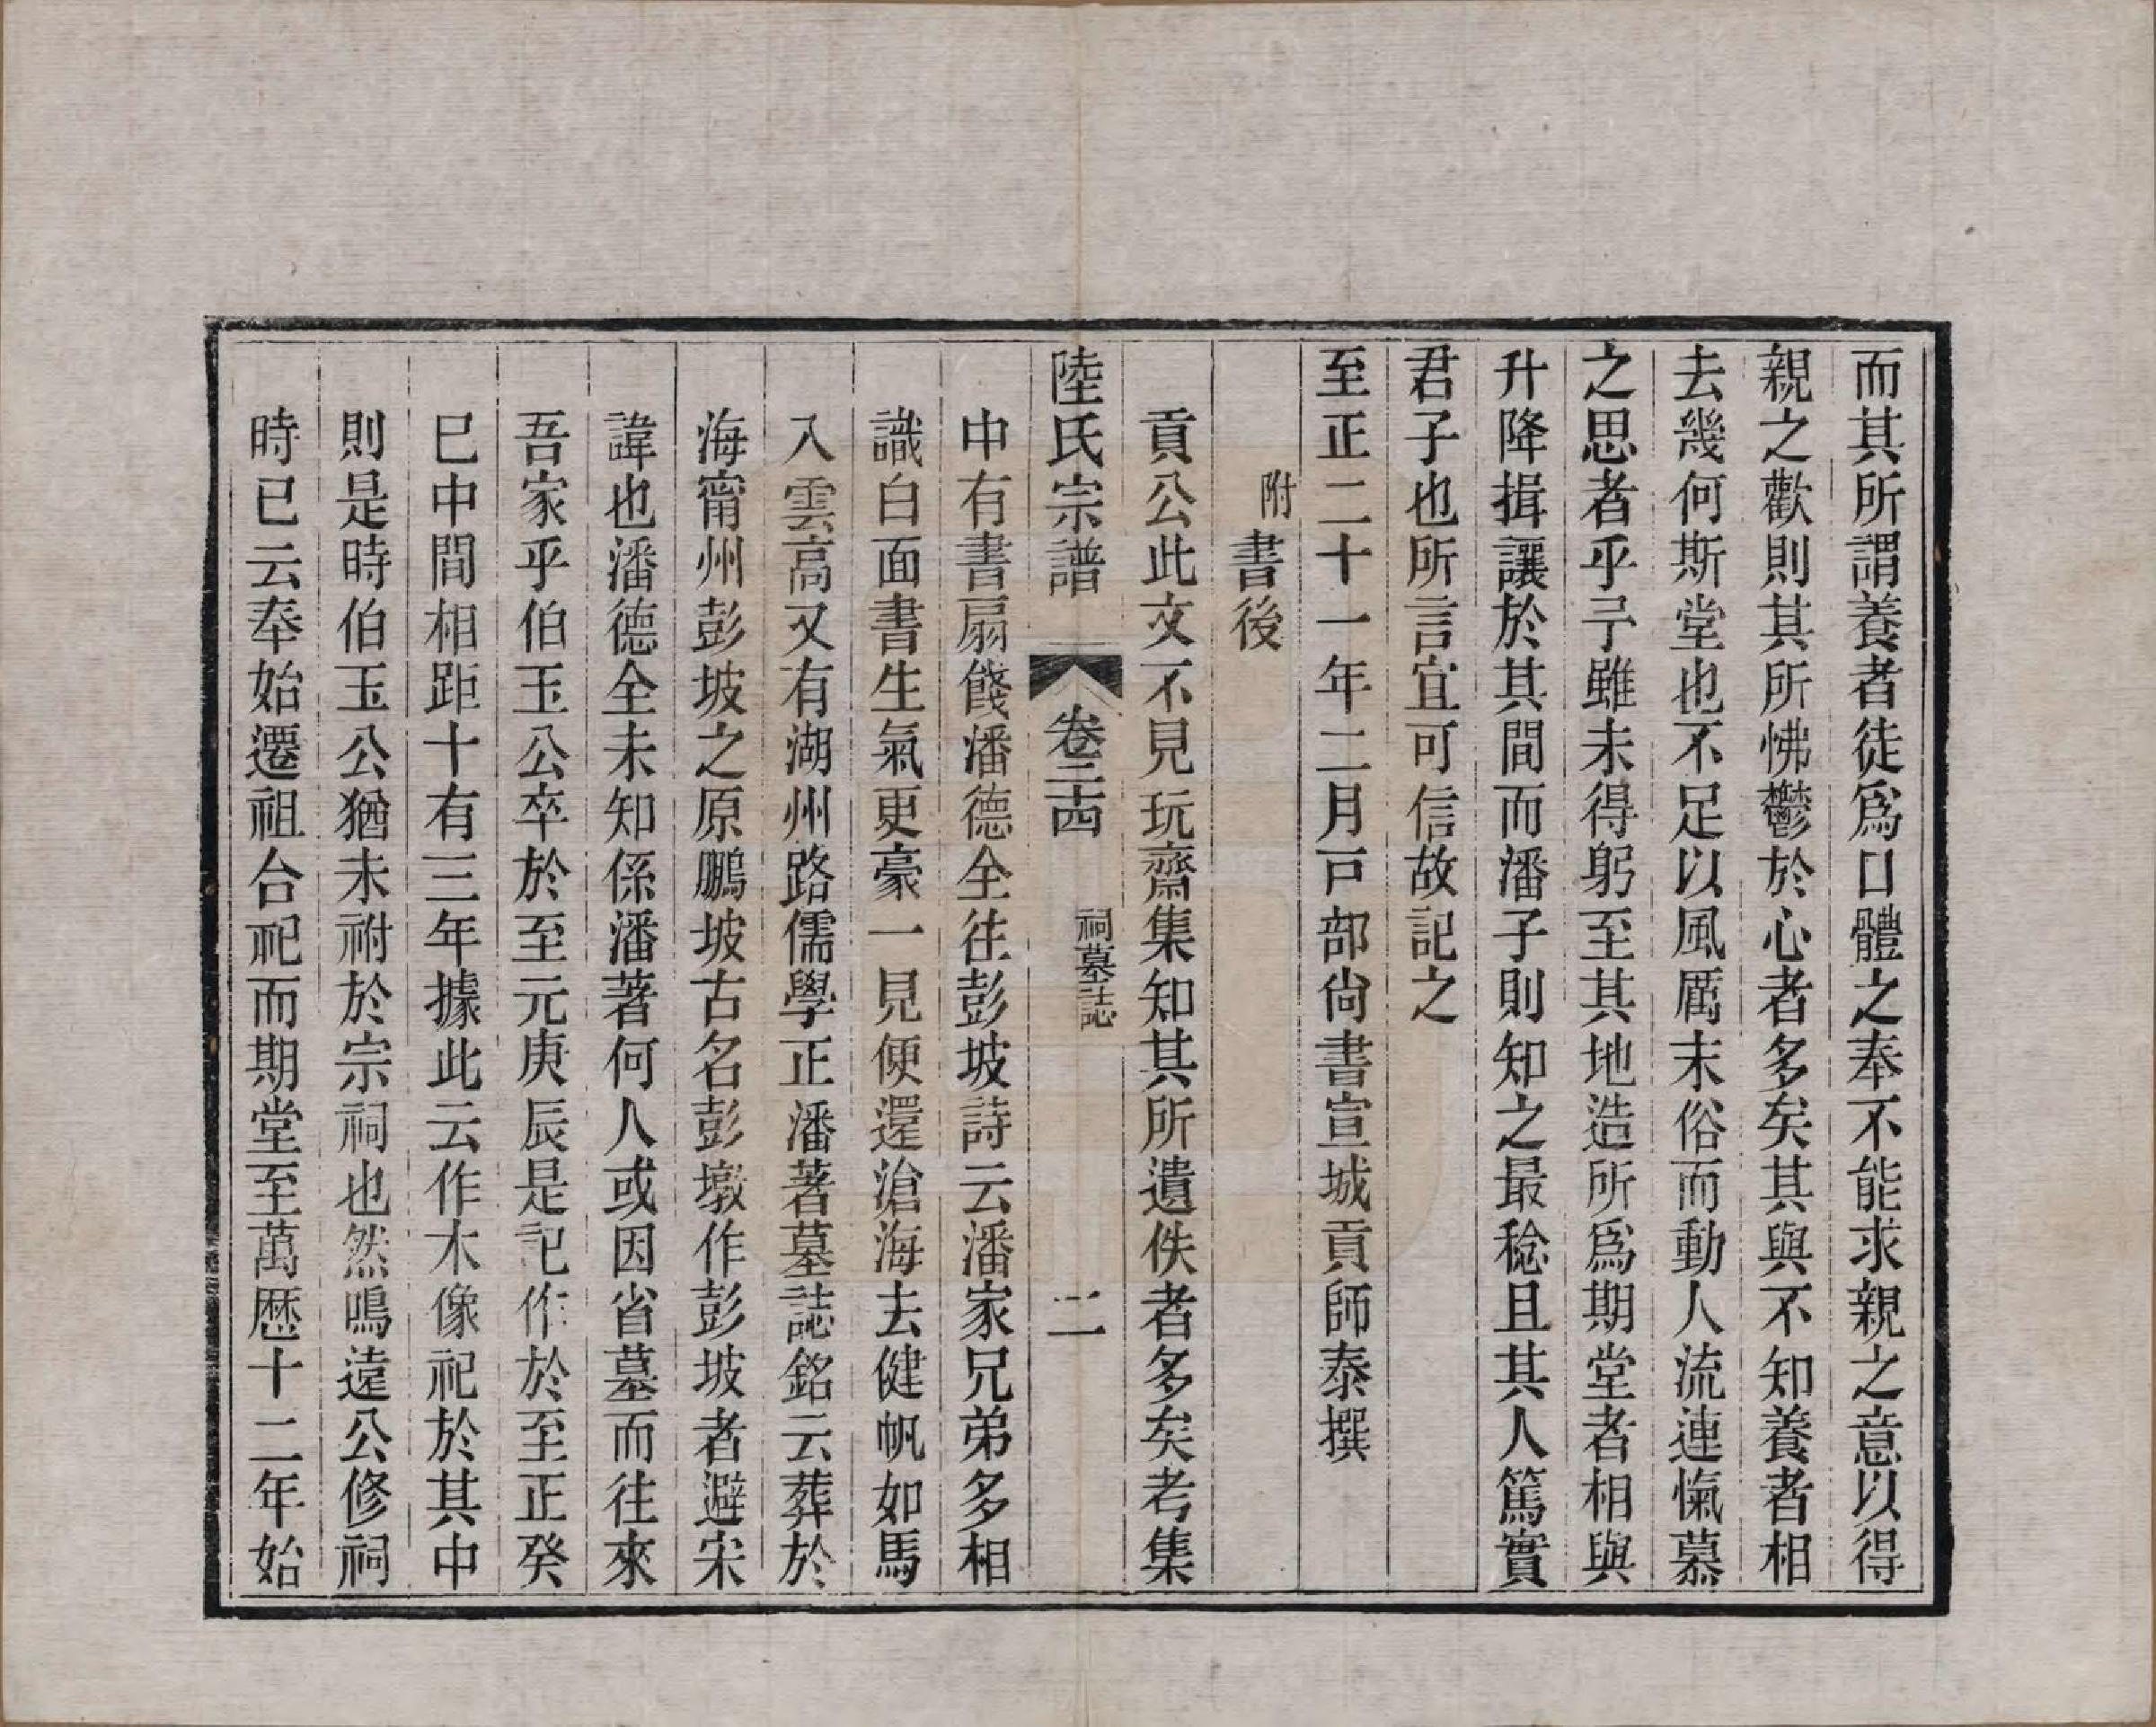 而其所謂養者徒爲口體之奉不能求親之意以得
親之歡則其所怫鬱於心者多矣其與不知養者相
去幾何斯堂也不足以風厲末俗而動人流連愾慕
之思者乎予雖未得躬至其地造所爲期堂者相與
升降揖讓於其間而潘子則知之最稔且其人篤實
君子也所言宜可信故記之
至正二十一年二月戸部尙書宣城貢師泰撰
附書後
貢公此文不見玩齋集知其所遺佚者多矣考集
陸氏宗譜 卷二十四 祠墓誌 二
中有書扇餞潘德全往彭坡詩云潘家兄弟多相
識白面書生氣更豪一見便還滄海去健帆如馬
入雲高又有湖州路儒學正潘著墓誌銘云葬於
海甯州彭坡之原鵬坡古名彭墩作彭坡者避宋
諱也潘德全未知係潘著何人或因省墓而往來
吾家乎伯玉公卒於至元庚辰是記作於至正癸
巳中間相距十有三年據此云作木像祀於其中
則是時伯玉公猶未祔於宗祠也然鳴遠公修祠
時已云奉始遷祖合祀而期堂至萬歷十二年始